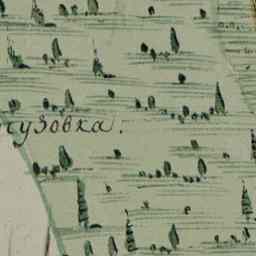 гузовка.